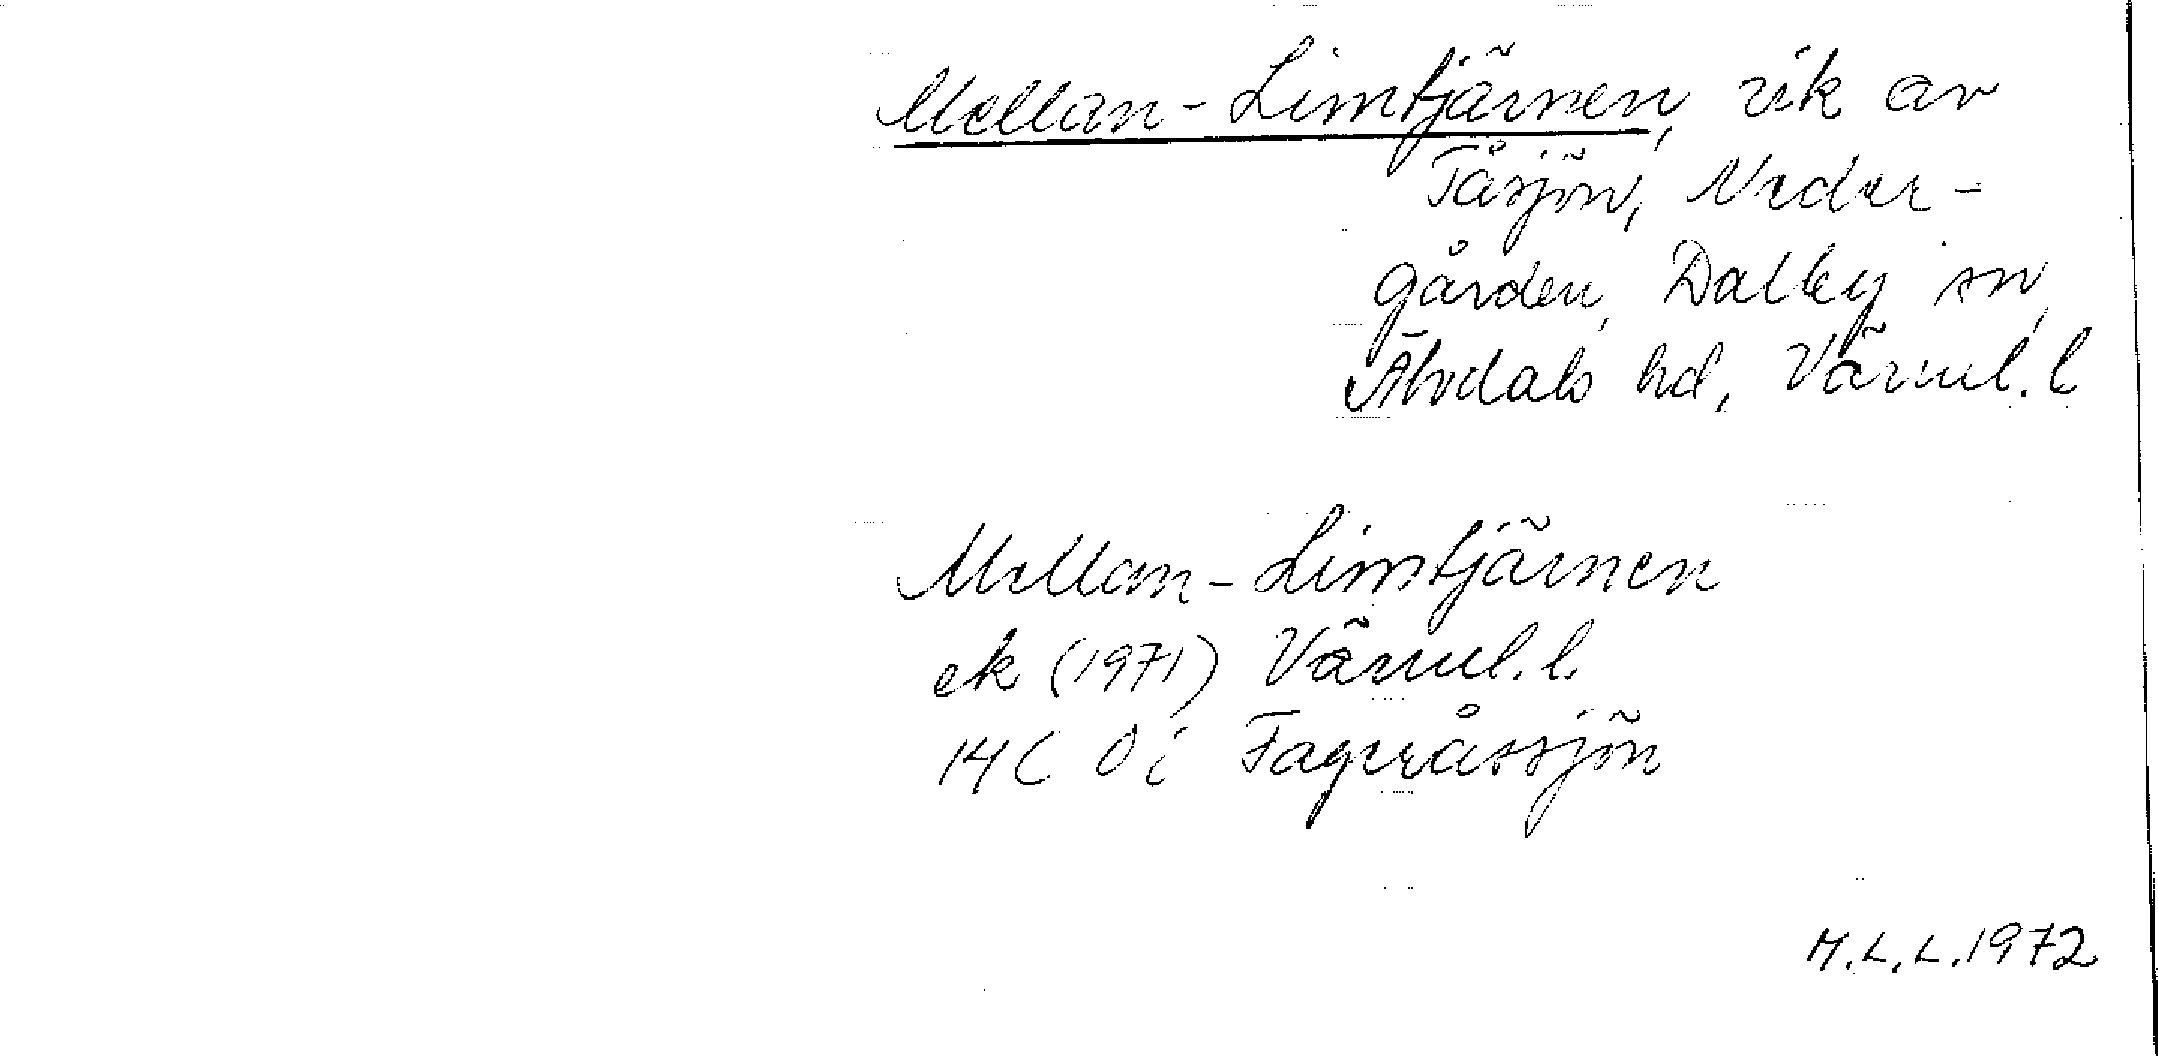 Mellan-Limtjärnen, vik av
Tåsjön, Neder-
gården, Dalby sn,
Älvdals hd, Värml. l
Mellan-Limtjärnen
ek (1971) Värml. l.
14C 0i Fageråssjön
M.L.L. 1972